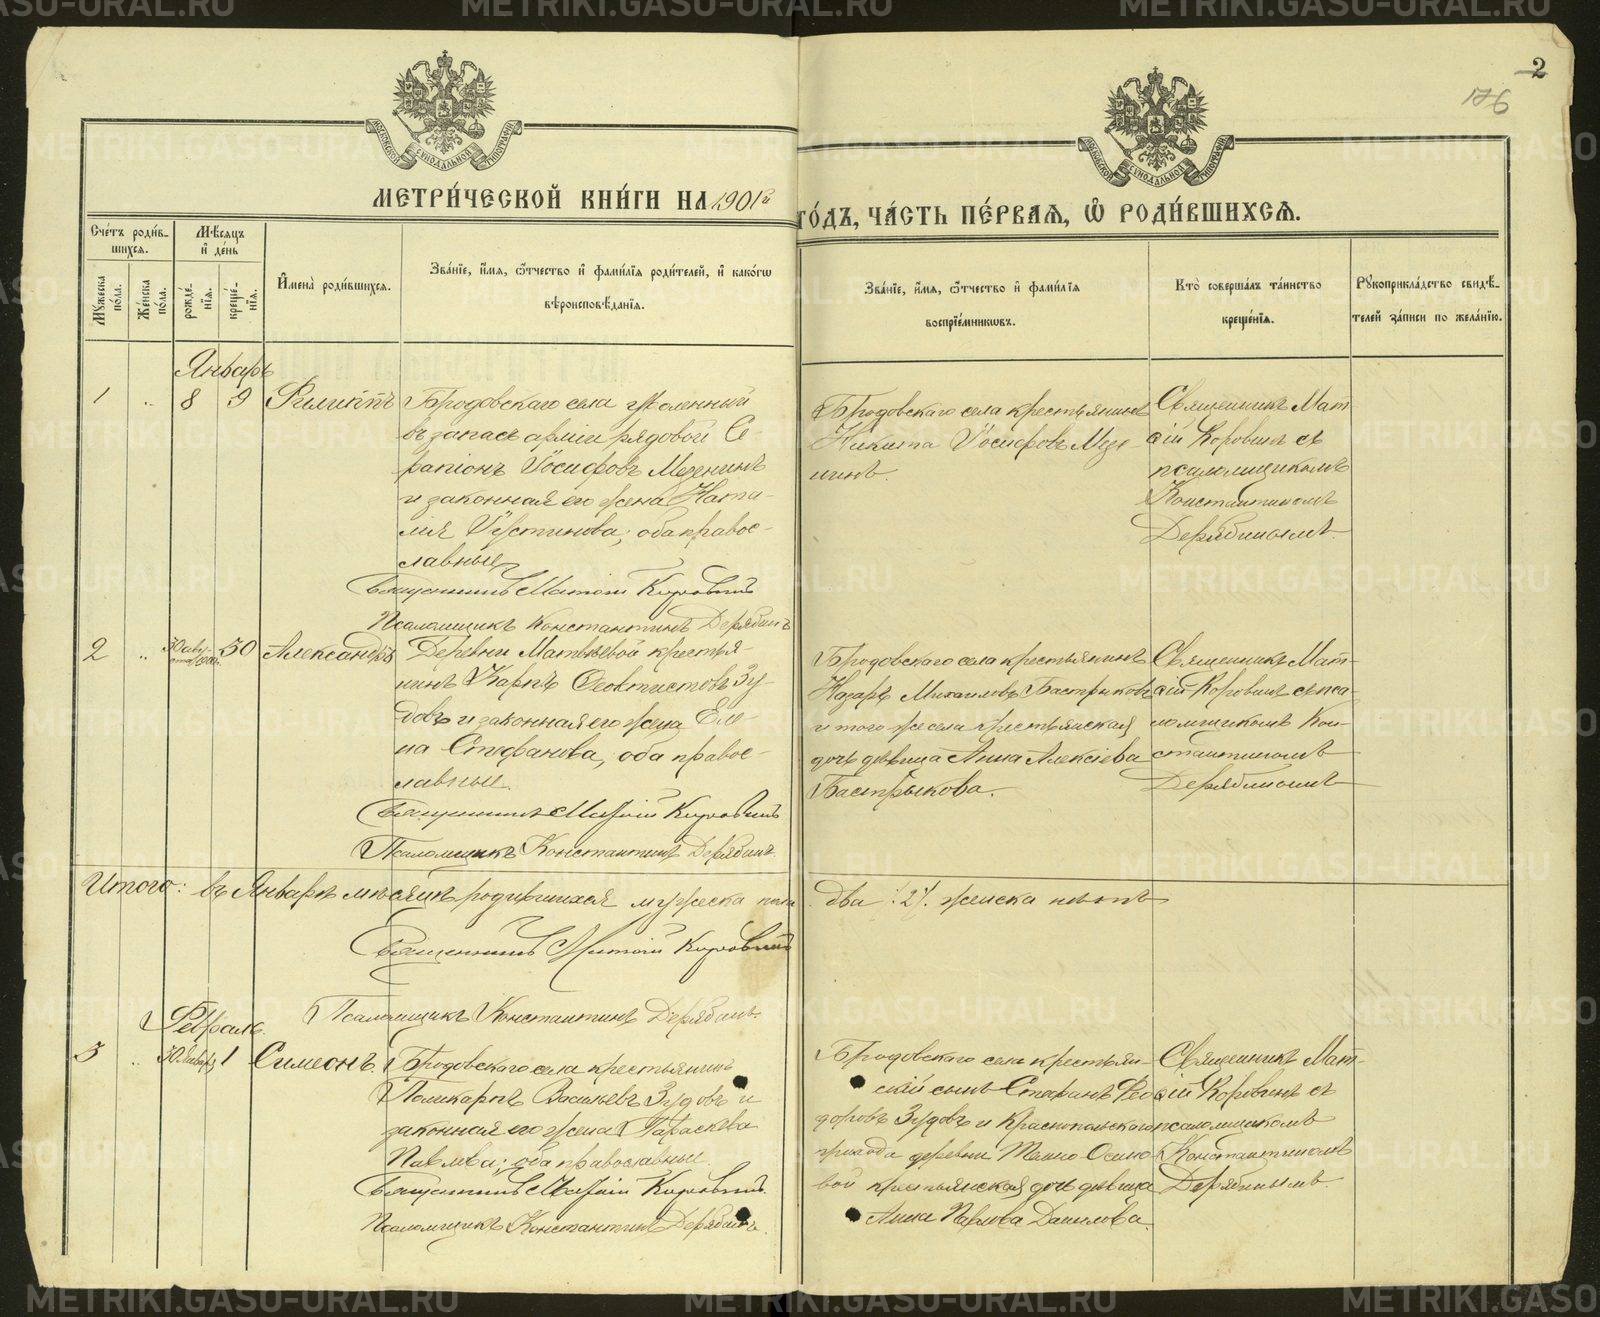 2
176
МЕТРИ́ЧЕСКОЙ КНИ́ГИ НА 1901й
ГО́ДЪ, ЧА́СТЬ ПЕ́РВАЯ, Ѡ҆ РОДИ́ВШИХСЯ.
Сче́тъ роди́в-
шихся.
Мѣ́сяцъ
и҆ де́нь
Мꙋ́жеска по́ла.
Же́нска по́ла.
рожде́-
нїѧ.
креще́-
нїѧ.
И҆мена̀ роди́вшихся.
Зва́нїе, и҆́мя, ѻ҆́тчество и҆ фами́лїя роди́телей, и҆ како́гѡ
вѣроисповѣ́данїя.
Зва́нїе, и҆́мя, ѻ҆́тчество и҆ фами́лїя
воспрїе́мникѡвъ.
Кто̀ соверша́лъ та́инство
креще́нїя.
Рꙋкоприкла́дство свидѣ́-
телей за́писи по жела́нїю.
Январь
1 " 8 9 Филиппъ
Бродовскаго села уволенный
въ запасъ арміи рядовой Се-
рапіонъ Іосифовъ Мезенинъ
и законная его жена Ната-
лія Іустинова; оба правос-
лавные
Священникъ Матѳій Коровинъ
Псаломщикъ Константинъ Дерябинъ
Бродовскаго села крестьянинъ
Никита Іосифовъ Мезе
нинъ.
Священникъ Мат
ѳій Коровинъ съ
псаломщикомъ
Константиномъ
Дерябинымъ.
2 " 30 авгу-
ста 1900 г. 30 Александръ
Деревни Матвѣевой крестья-
нинъ Карпъ Ѳеоктистовъ Зу-
довъ и законная его жена Еле-
на Стефанова, оба правос-
лавные.
Священникъ Матѳій Коровинъ
Псаломщикъ Константинъ Дерябинъ.
Бродовскаго села крестьянинъ
Назаръ Михаиловъ Бастрыковъ
и того же села крестьянская
дочь дѣвица Анна Алексіева
Бастрыкова.
Священникъ Мат-
ѳій Коровинъ съ пса-
ломщикомъ Кон-
стантиномъ
Дерябинымъ
Итого: въ Январѣ мѣсяцѣ родившихся мужеска пола два /2/. женска нѣтъ
Священникъ Матѳій Коровинъ
Псаломщикъ Константинъ Дерябинъ.
Февраль.
3 " 30 января 1 Симеонъ.
Бродовскаго села крестьянинъ
Поликарпъ Васильевъ Зудовъ и
законная его жена Параскева
Павлова; оба православные.
Священникъ Матѳій Коровинъ.
Псаломщикъ Константинъ Дерябинъ.
Бродовскаго села крестьян-
скій сынъ Стефанъ Ѳео
доровъ Зудовъ и Краснопольскаго
прихода деревни Темно-Осино
вой крестьянская дочь дѣвица
Анна Павлова Данилова.
Священникъ Мат-
ѳій Коровинъ съ
псаломщикомъ
Константиномъ
Дерябинымъ.
METRIKI.GASO-URAL.RU